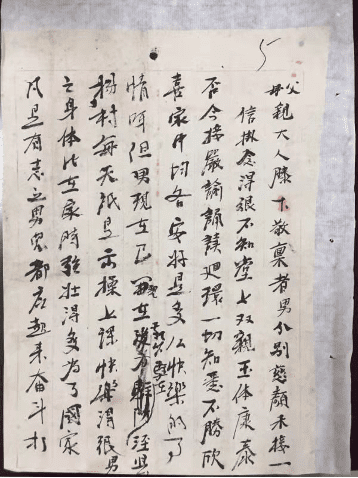 5
父母親大人膝下敬禀者男分別慈顏未接一
信掛念得很不知堂上双親玉体康泰
否今接嚴諭誦讀廻環一切知悉不勝欣
喜家中均各安好是多么快樂的事
情呀但男現在已
楊村每天祇是下操上課快樂得很男
之身体比在家時強壯得多为了國家
凡是有志之男兒都应起来奋斗打